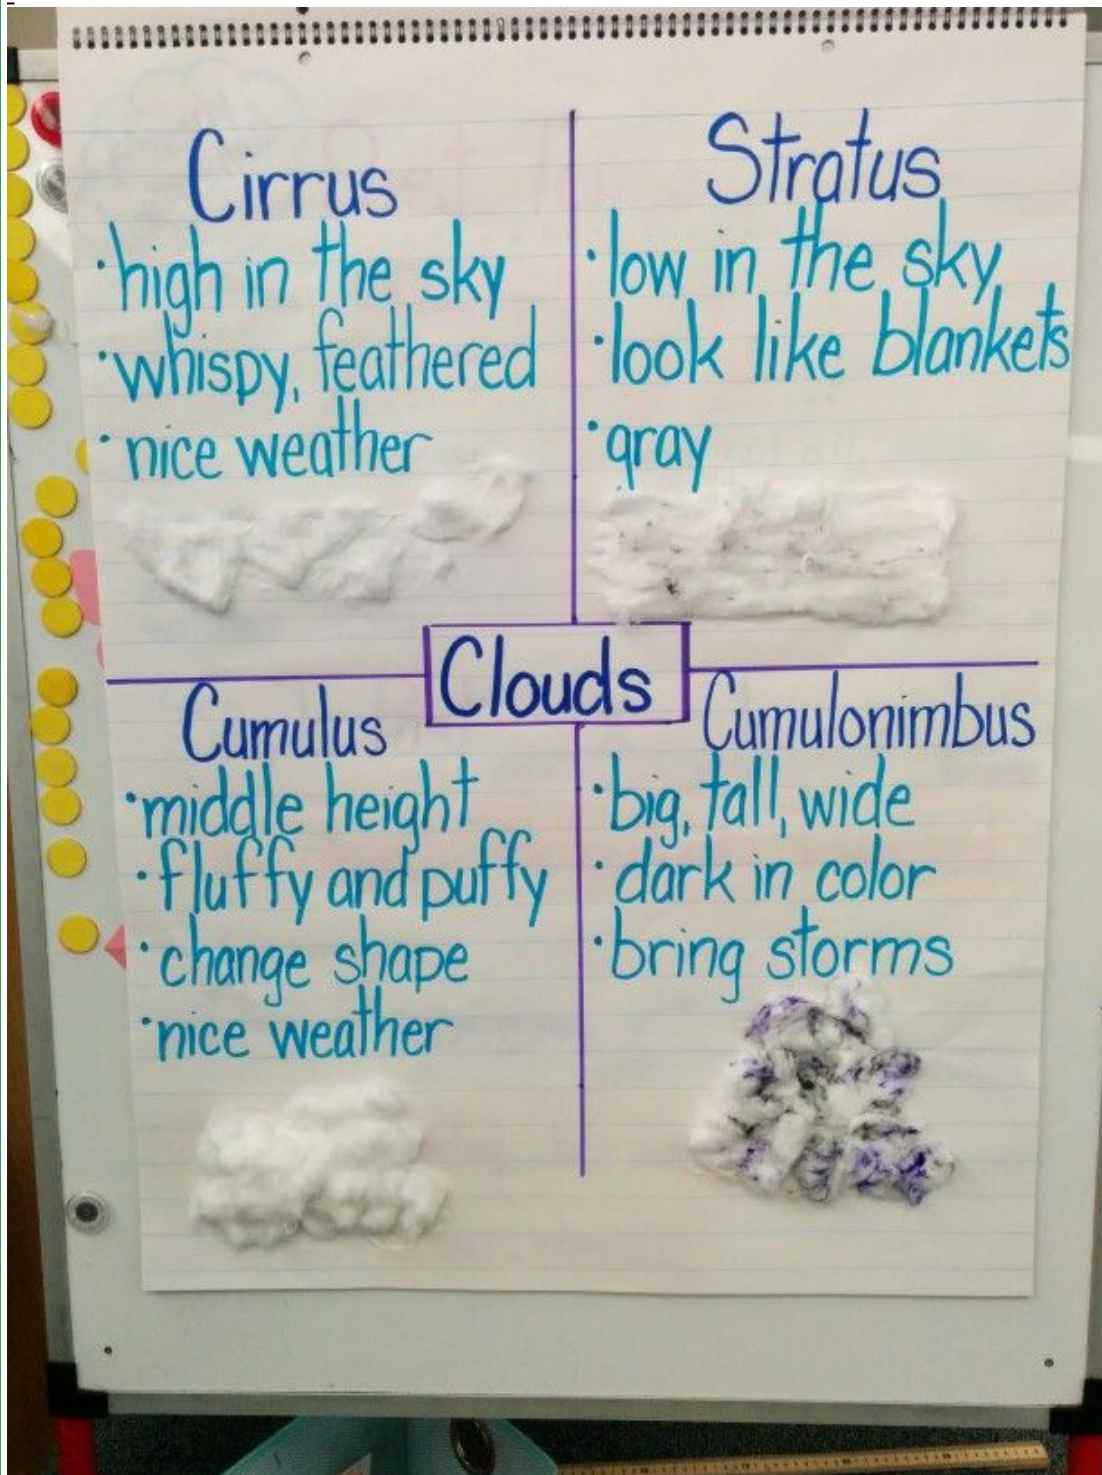 Cirrus
·high in the sky
·whispy, feathered
·nice weather
Stratus
·low in the sky
·look like blankets
·gray
Clouds
Cumulus
·middle height
·fluffy and puffy
·change shape
·nice weather
Cumulonimbus
·big, tall, wide
·dark in color
·bring storms